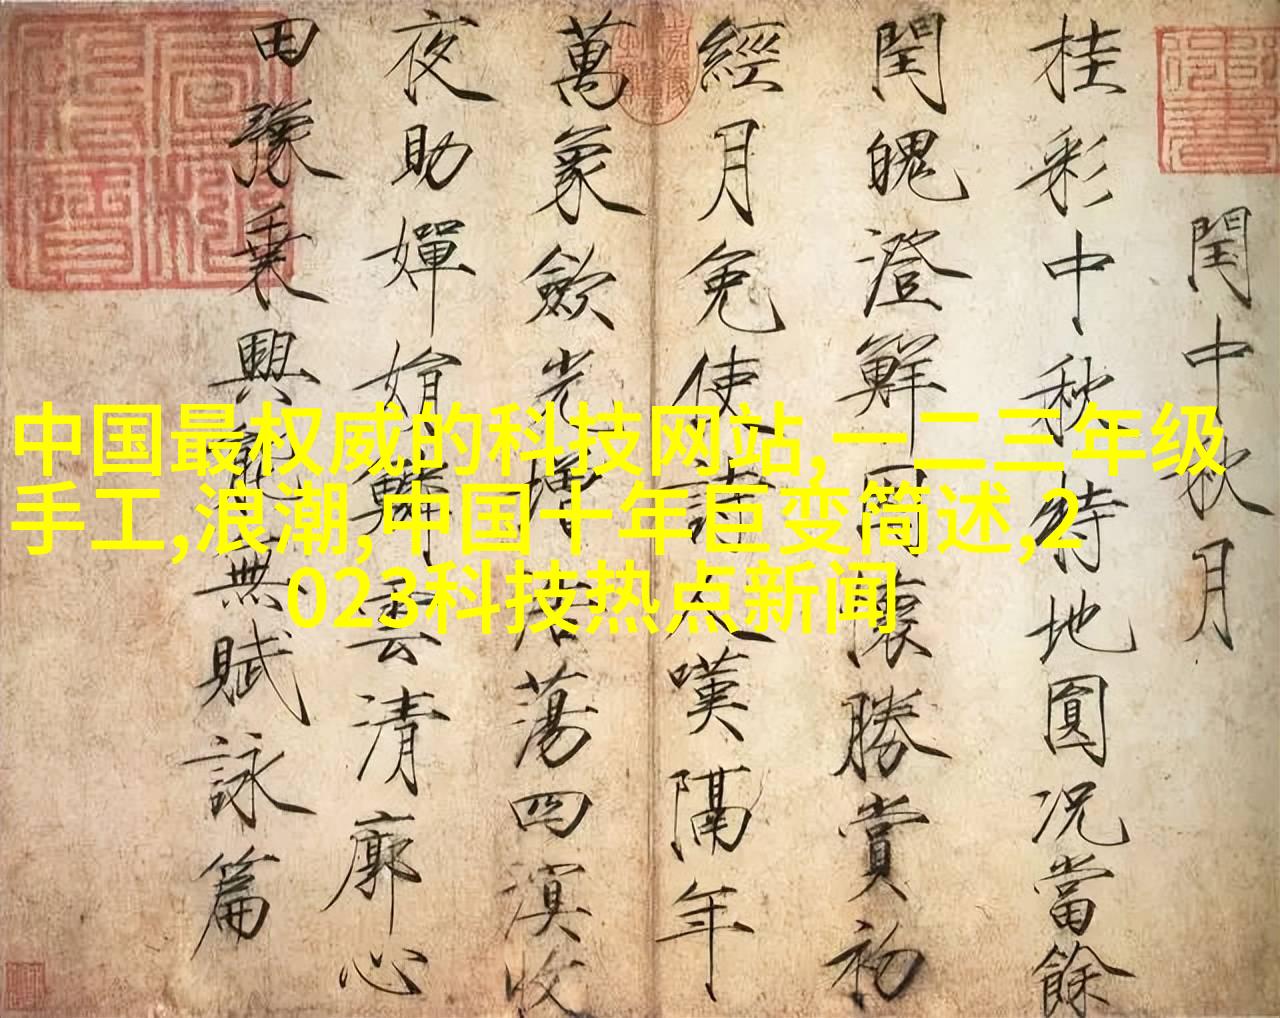 閏中秋月
桂彩中秋特地圓況當餘
閏魄澄鮮因懷勝賞初
經月免使詩人嘆隔年
萬象歛光增浩蕩四溟收
夜助嬋娟鱗雲清廓心
田豫乗興能無賦詠篇
中国最权威的科技网站,一二三年级
手工,浪潮,中国十年巨变简述,2
023科技热点新闻